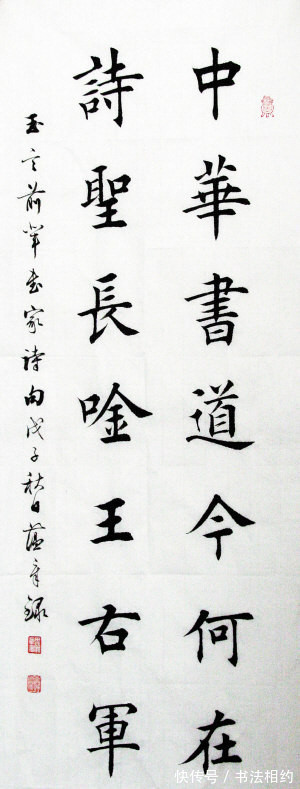 中華書道今何在
詩聖長唫王右軍
玉言前輩書家詩句戊子秋日章錄
快传号 / 书法相约